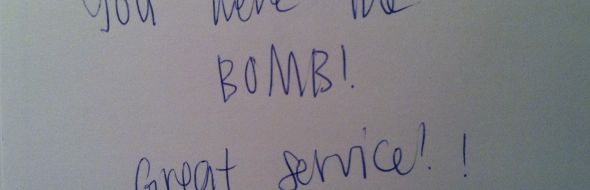 You were the
BOMB!
Great service!!